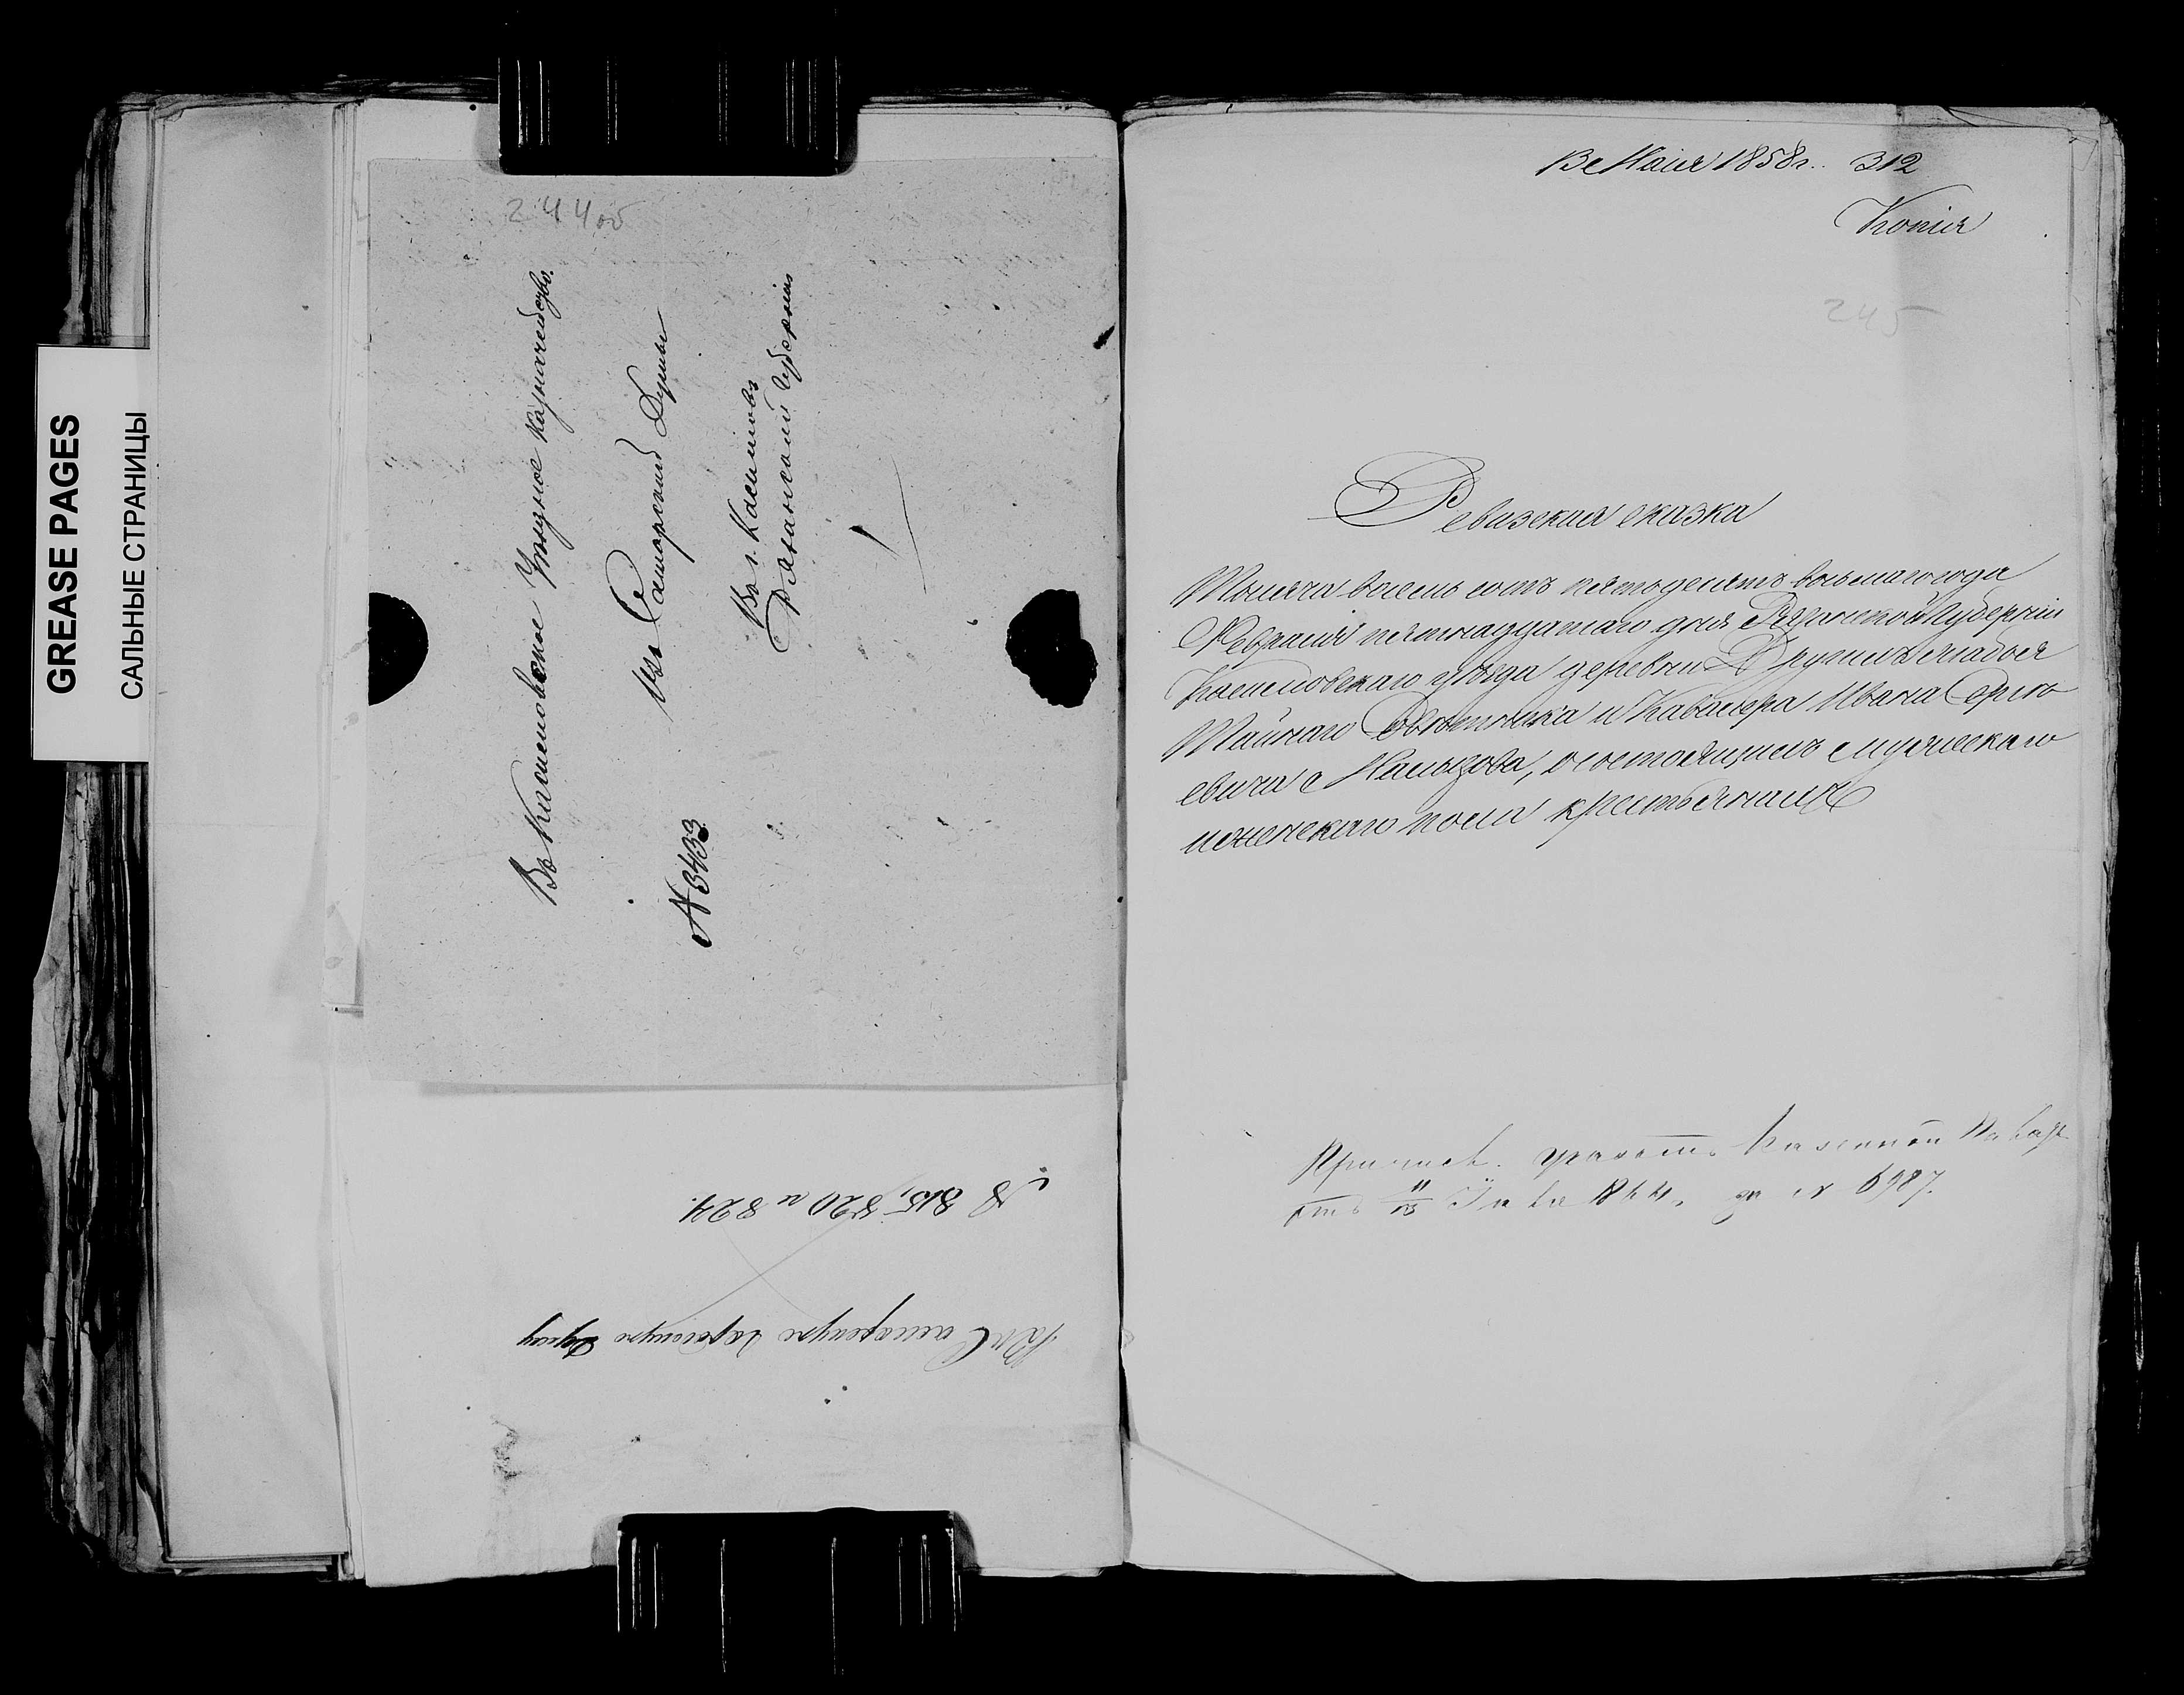 GREASE PAGES
САЛЬНЫЕ СТРАНИЦЫ
244об
Въ Касимовское Уѣздное Казначейство.
Изъ Самарской Думы
№ 3433
Въ г. Касимовъ
Рязанской Губерніи
№ 815, 820 и 824.
Въ Самарскую Городскую Думу
18 Маія 1858 г. 312
Копія
245
Ревизская сказка
Тысяча восемь сотъ пятьдесятъ восьмаго года
Февраля пятнадцатаго дня Рязанской Губерніи
Касимовскаго уѣзда деревни слободы
Тайнаго Совѣтника и Кавалера Ивана Серге
евича Мальцова, о состоящихъ мужескаго
и женскаго пола крестьянахъ
Казенной
отъ 11/15 1844, за № 6987.